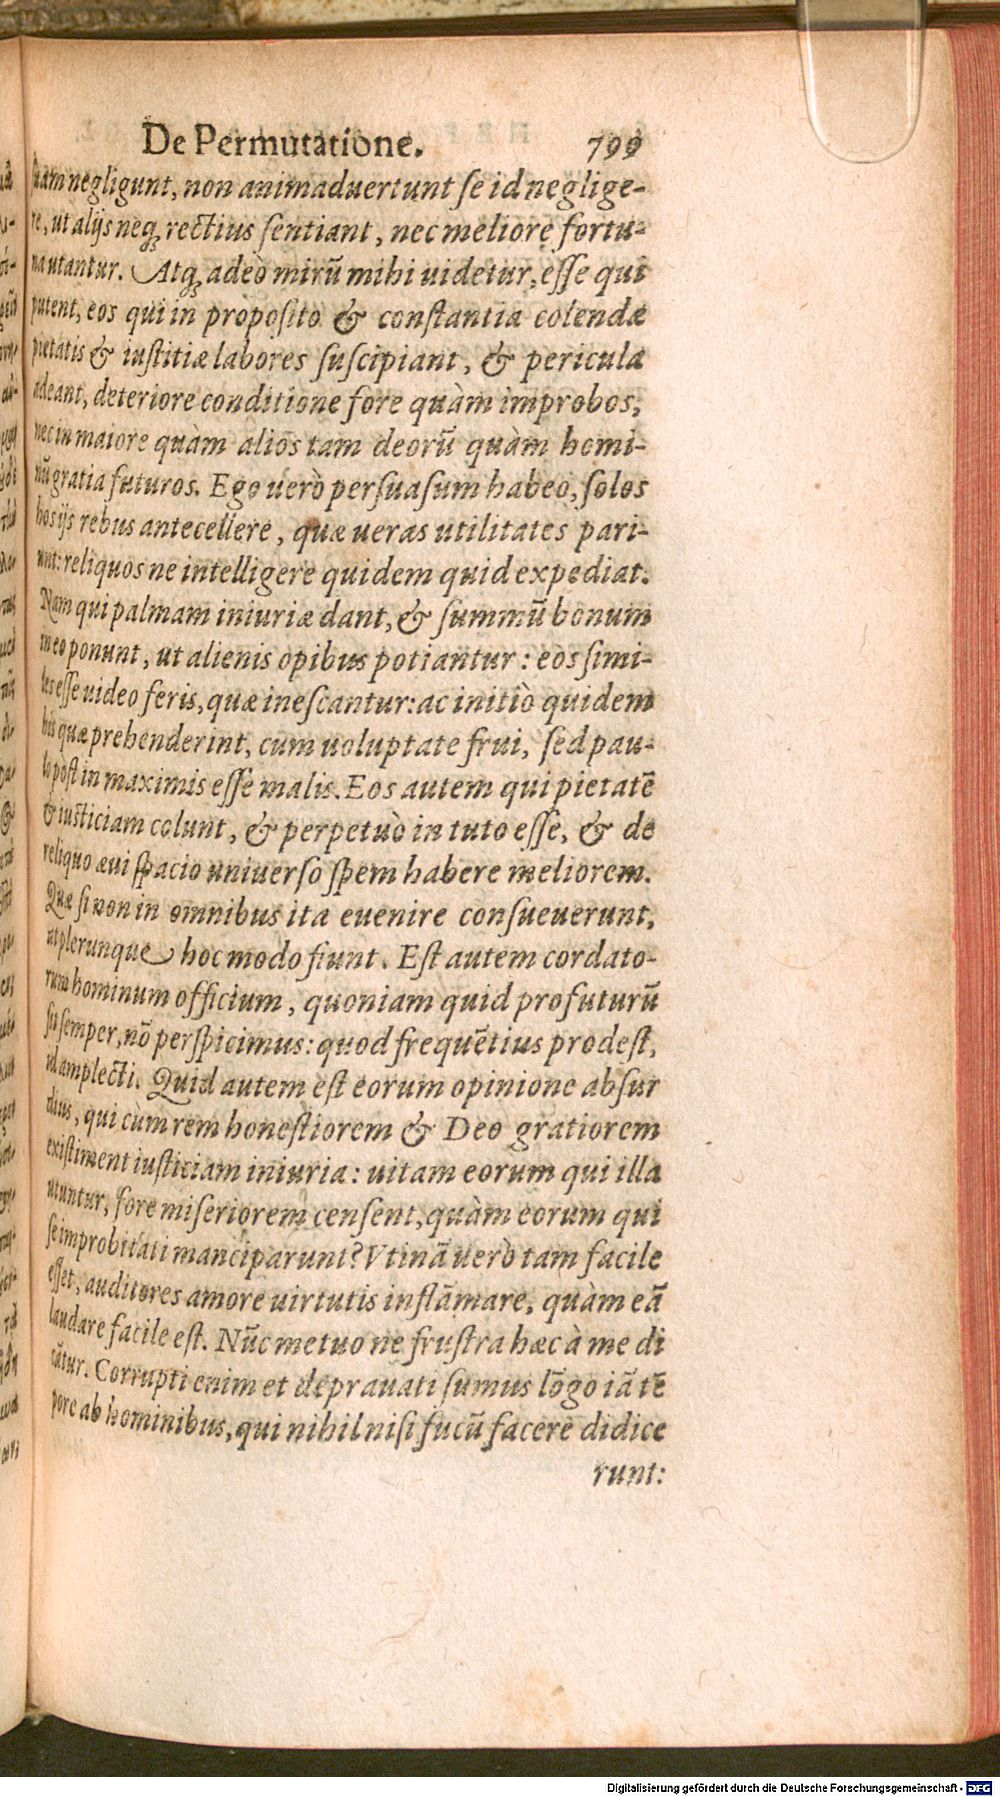 De Permutatione. 799
suam negligunt, non animaduertunt se id neglige-
re, ut alijs neq; rectius sentiant, nec meliore fortu-
na utantur. Atq; adeò mirũ mihi uidetur, esse qui
putent, eos qui in proposito & constantia colendæ
pietatis & iustitiæ labores suscipiant, & pericula
adeant, deteriore conditione fore quàm improbos,
nec in maiore quàm alios tam deorũ quàm homi-
nũ gratia futuros. Ego uerò persuasum habeo, solos
hos ijs rebus antecellere, quæ ueras utilitates pari-
unt: reliquos ne intelligere quidem quid expediat.
Nam qui palmam iniuriæ dant, & summũ bonum
in eo ponunt, ut alienis opibus potiantur: eos simi-
les esse uideo feris, quæ inescantur: ac initiò quidem
his quæ prehenderint, cum uoluptate frui, sed pau-
lo post in maximis esse malis. Eos autem qui pietatẽ
& iusticiam colunt, & perpetuò in tuto esse, & de
reliquo æui spacio uniuerso spem habere meliorem.
Quæ si non in omnibus ita euenire consueuerunt,
ut plerunque hoc modo fiunt. Est autem cordato-
rum hominum officium, quoniam quid profuturũ
sit semper, nõ perspicimus: quod frequẽtius prodest,
id amplecti. Quid autem est eorum opinione absur
dius, qui cùm rem honestiorem & Deo gratiorem
existiment iusticiam iniuria: uitam eorum qui illa
utuntur, fore miseriorem censent, quàm eorum qui
se improbitati manciparunt? Vtinã uerò tam facile
esset, auditores amore uirtutis inflãmare, quàm eã
laudare facile est. Nũc metuo ne frustra hæc à me di
cãtur. Corrupti enim et deprauati sumus lõgo iã tẽ
pore ab hominibus, qui nihil nisi fucũ facere didice
runt:
Digitalisierung gefördert durch die Deutsche Forschungsgemeinschaft - DFG